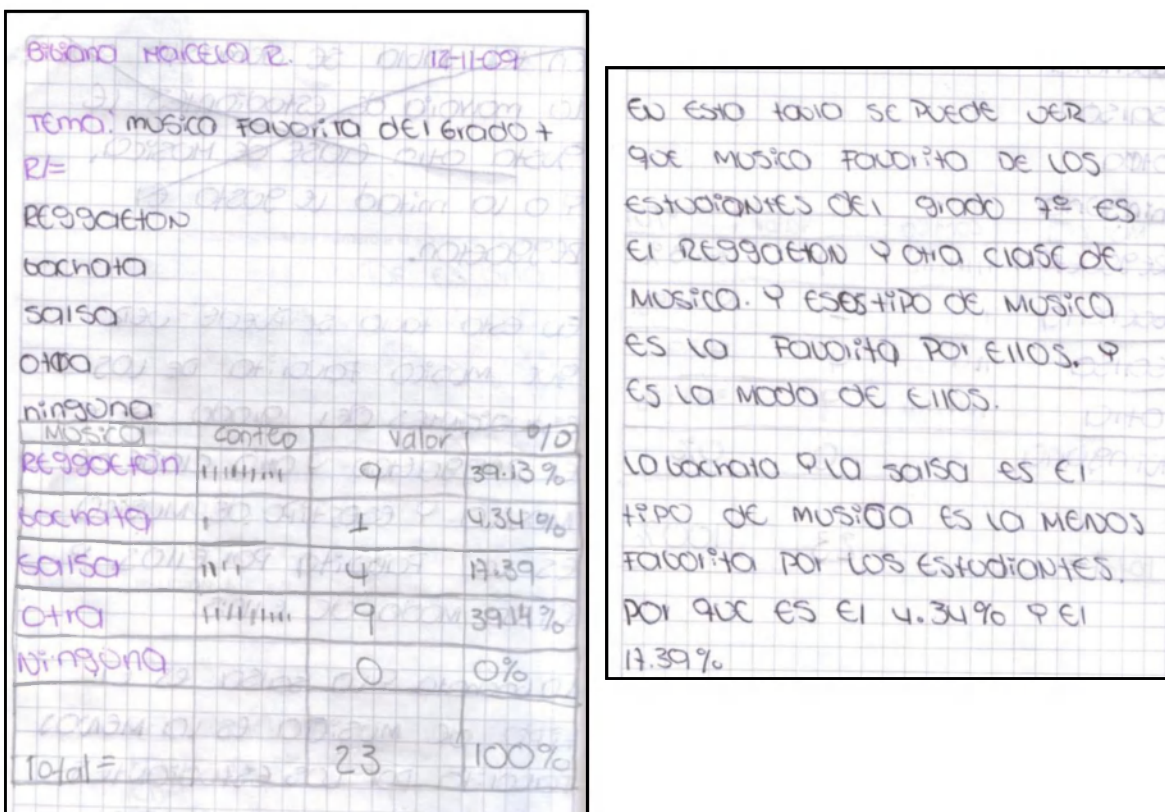 Bibiana Marcela R. 12-11-09
Tema: musica Favorita del Grado 7
R/=
REggaeton
bachata
salsa
otra
ninguna
Musica conteo valor %
REggaeton ııııııııı 9 39.13%
bachata ı 1 4.34%
salsa ıııı 4 17.39
Otra ııııııııı 9 39.14%
Ninguna 0 0%
Total= 23 100%
EN Esta tabla SE PUEDE VER
QUE MUSICA FAVORITA DE LOS
ESTUDIANTES DEL grado 7º ES
El REggaeton Y otra clase DE
MUSICA. Y ESES tipo DE MUSICA
ES la Favorita Por Ellos. Y
ES LA MODA DE Ellos.
La bachata Y la salsa ES El
tipo DE MUSICA ES la MENOS
Favorita Por LOS EStudiantes.
Por QUE ES El 4.34% Y El
17.39%